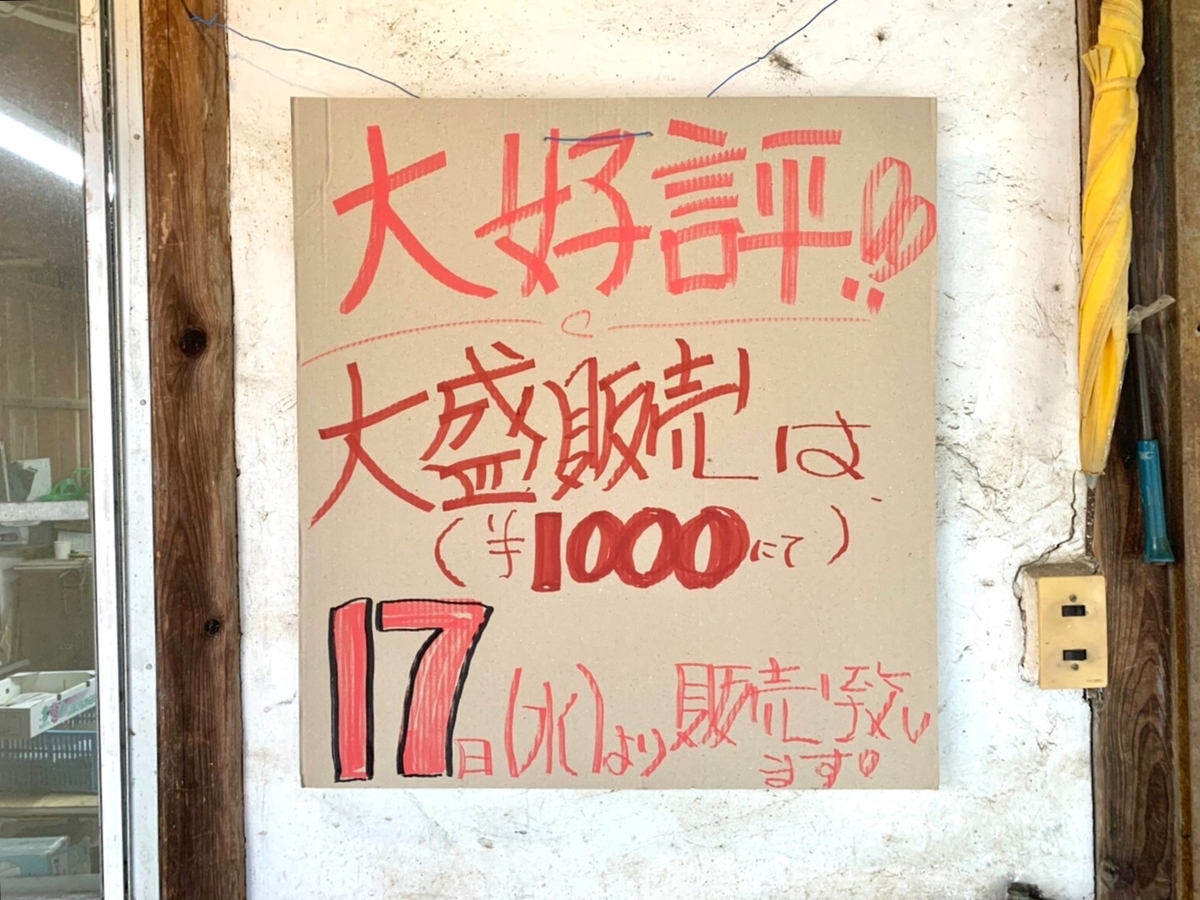 大好評!!
大盛販売は
(¥1000にて)
17日(水)より販売致し
ます。